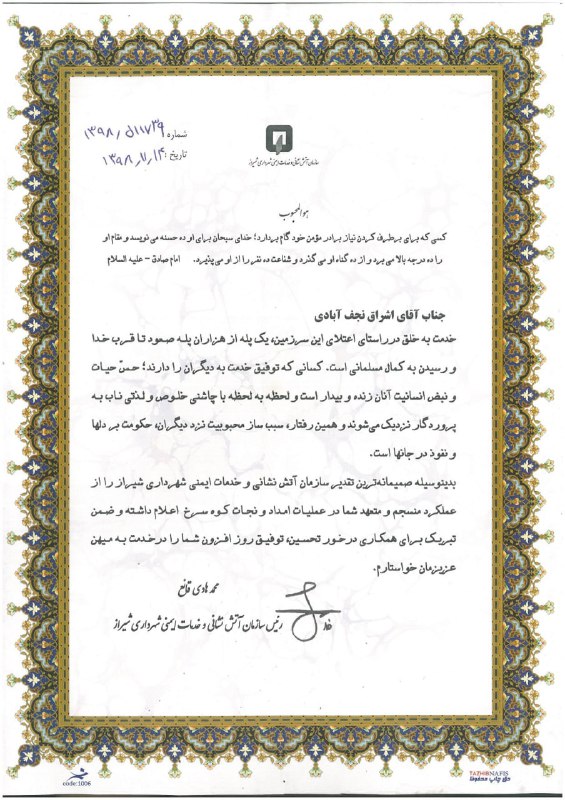 شماره ۱۳۹۸/۵۱۱۷۳۹
تاریخ: ۱۳۹۸/۷/۱۴
سازمان آتش نشانی و خدمات ایمنی شهرداری شیراز
هوالمحبوب
کسی که برای برطرف کردن نیاز برادر مؤمن خود گام بردارد؛ خدای سبحان برای او ده حسنه می نویسد و مقام او
را ده درجه بالا می برد و از ده گناه او می گذرد و شفاعت ده نفر را از او می پذیرد. امام صادق – علیه السلام
جناب آقای اشراق نجف آبادی
خدمت به خلق در راستای اعتلای این سرزمین، یک پله از هزاران پله صعود تا قرب خدا
و رسیدن به کمال مسلمانی است. کسانی که توفیق خدمت به دیگران را دارند؛ حسّ حیات
و نبض انسانیت آنان زنده و بیدار است و لحظه به لحظه با چاشنی خلوص و لذتی ناب به
پروردگار نزدیک می‌شوند و همین رفتار، سبب ساز محبوبیت نزد دیگران، حکومت بر دلها
و نفوذ در جانها است.
بدینوسیله صمیمانه‌ترین تقدیر سازمان آتش نشانی و خدمات ایمنی شهرداری شیراز را از
عملکرد منسجم و متعهد شما در عملیات امداد و نجات کوه سرخ اعلام داشته و ضمن
تبریک برای همکاری درخور تحسین، توفیق روز افزون شما را درخدمت به میهن
عزیزمان خواستارم.
محمد هادی قانع
رئیس سازمان آتش نشانی و خدمات ایمنی شهرداری شیراز
code:1006
TAZHIBNAFIS
حق چاپ محفوظ